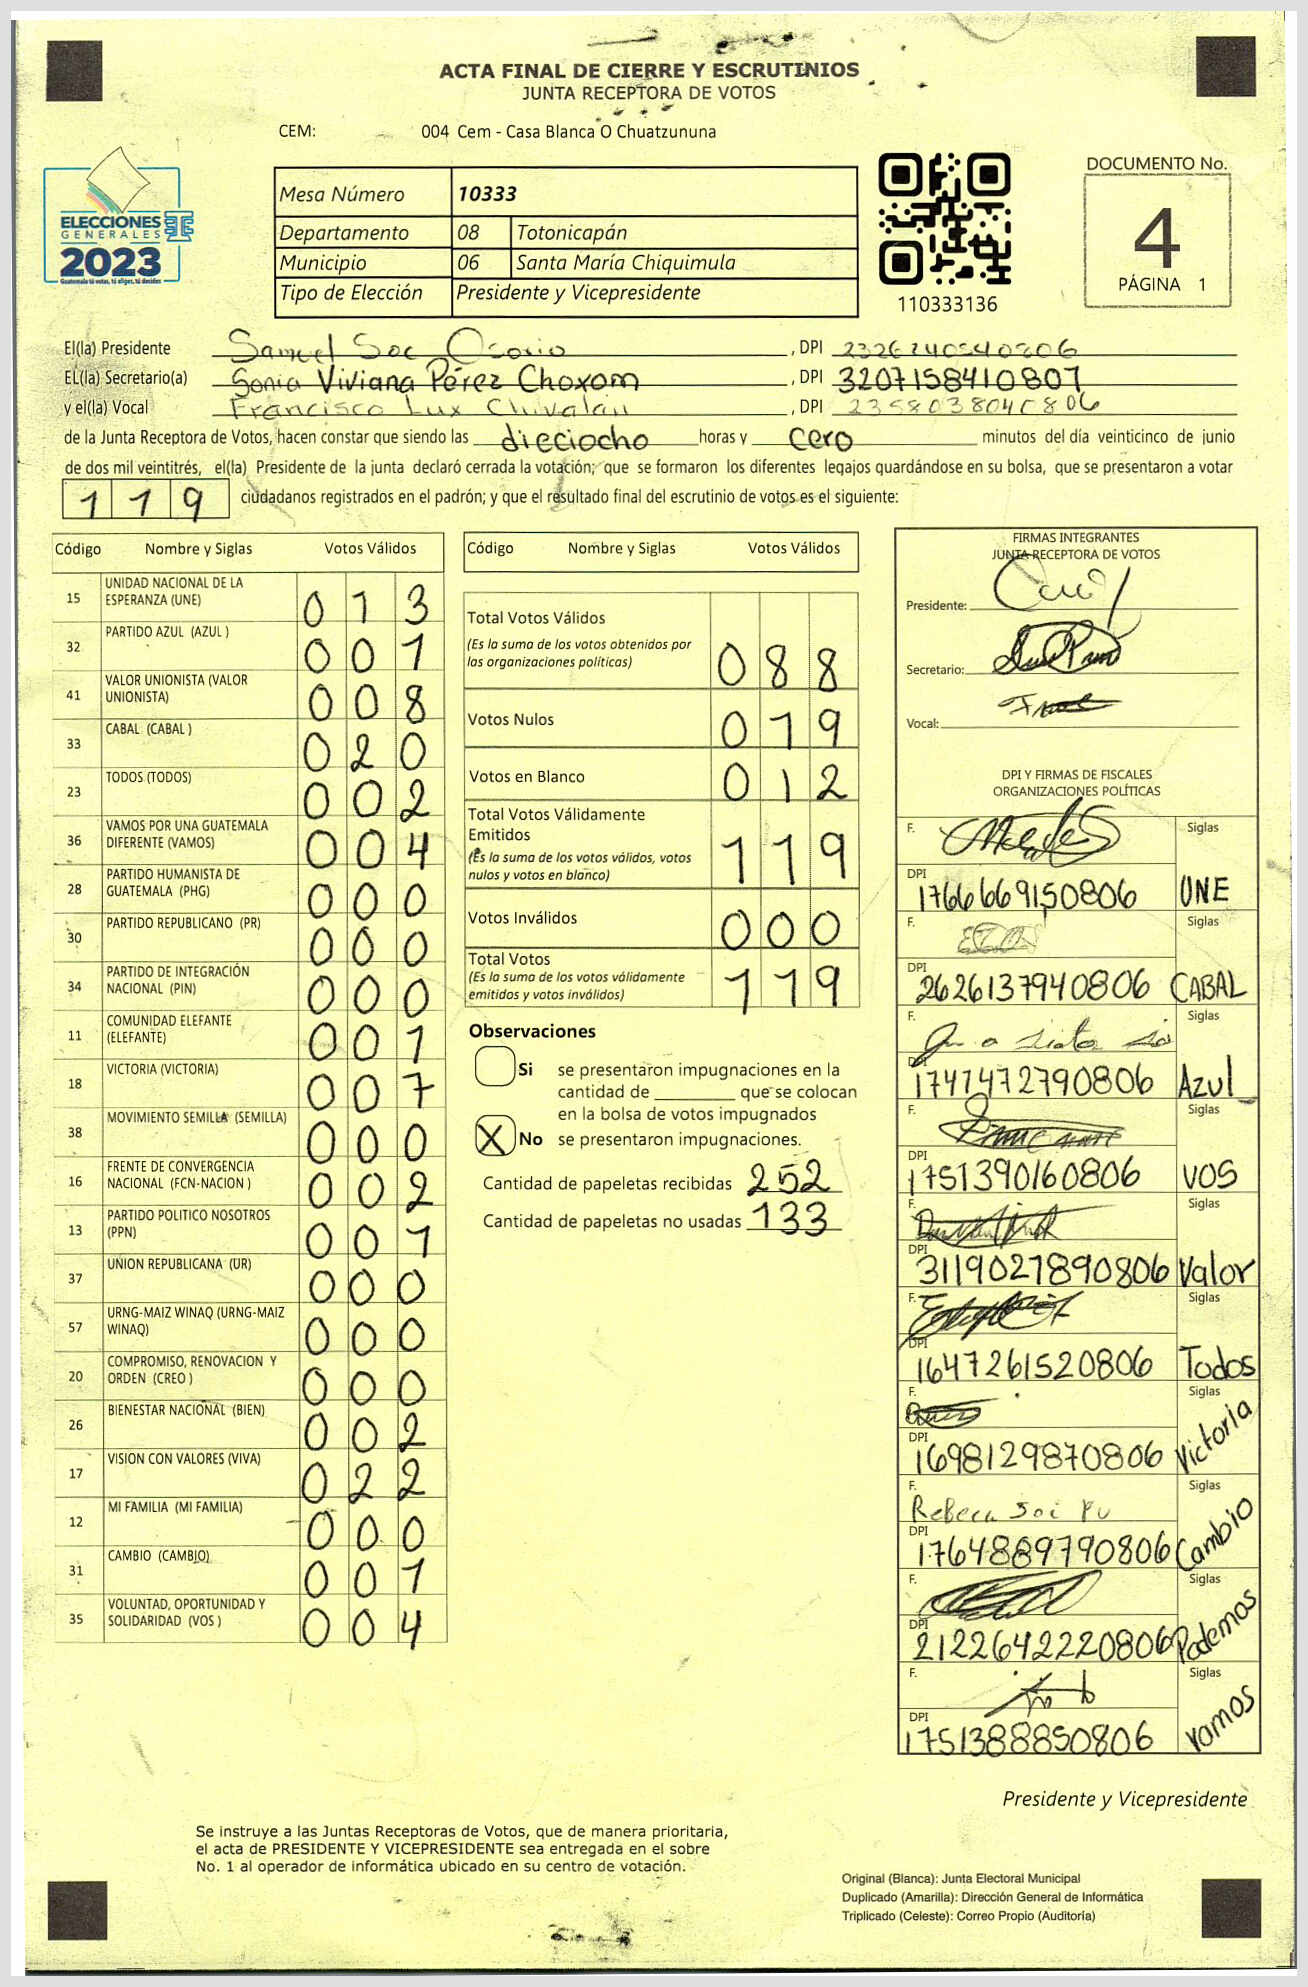 ACTA FINAL DE CIERRE Y ESCRUTINIOS
JUNTA RECEPTORA DE VOTOS
CEM: 004 Cem - Casa Blanca O Chuatzununa
ELECCIONES
GENERALES
2023
Guatemala tú votas, tú eliges, tú decides
TSE
Mesa Número 10333
Departamento 08 Totonicapán
Municipio 06 Santa María Chiquimula
Tipo de Elección Presidente y Vicepresidente
110333136
DOCUMENTO No.
4
PÁGINA 1
El(la) Presidente Samuel Soc Osorio, DPI
EL(la) Secretario(a) Sonia Viviana Pérez Choxom, DPI 3207158410807
y el(la) Vocal Francisco Lux Chivalan, DPI
de la Junta Receptora de Votos, hacen constar que siendo las dieciocho horas y cero minutos del día veinticinco de junio
de dos mil veintitrés, el(la) Presidente de la junta declaró cerrada la votación; que se formaron los diferentes legajos guardándose en su bolsa, que se presentaron a votar
119 ciudadanos registrados en el padrón; y que el resultado final del escrutinio de votos es el siguiente:
Código Nombre y Siglas Votos Válidos
15 UNIDAD NACIONAL DE LA ESPERANZA (UNE) 013
32 PARTIDO AZUL (AZUL ) 001
41 VALOR UNIONISTA (VALOR UNIONISTA) 008
33 CABAL (CABAL ) 020
23 TODOS (TODOS) 002
36 VAMOS POR UNA GUATEMALA DIFERENTE (VAMOS) 004
28 PARTIDO HUMANISTA DE GUATEMALA (PHG) 000
30 PARTIDO REPUBLICANO (PR) 000
34 PARTIDO DE INTEGRACIÓN NACIONAL (PIN) 000
11 COMUNIDAD ELEFANTE (ELEFANTE) 001
18 VICTORIA (VICTORIA) 007
38 MOVIMIENTO SEMILLA (SEMILLA) 000
16 FRENTE DE CONVERGENCIA NACIONAL (FCN-NACION ) 002
13 PARTIDO POLITICO NOSOTROS (PPN) 001
37 UNION REPUBLICANA (UR) 000
57 URNG-MAIZ WINAQ (URNG-MAIZ WINAQ) 000
20 COMPROMISO, RENOVACION Y ORDEN (CREO ) 000
26 BIENESTAR NACIONAL (BIEN) 002
17 VISION CON VALORES (VIVA) 022
12 MI FAMILIA (MI FAMILIA) 000
31 CAMBIO (CAMBIO) 001
35 VOLUNTAD, OPORTUNIDAD Y SOLIDARIDAD (VOS ) 004
Código Nombre y Siglas Votos Válidos
Total Votos Válidos 088
(Es la suma de los votos obtenidos por
las organizaciones políticas)
Votos Nulos 019
Votos en Blanco 012
Total Votos Válidamente
Emitidos 119
(Es la suma de los votos válidos, votos
nulos y votos en blanco)
Votos Inválidos 000
Total Votos 119
(Es la suma de los votos válidamente
emitidos y votos inválidos)
Observaciones
Si se presentaron impugnaciones en la
cantidad de ________ que se colocan
en la bolsa de votos impugnados
X No se presentaron impugnaciones.
Cantidad de papeletas recibidas 252
Cantidad de papeletas no usadas 133
FIRMAS INTEGRANTES
JUNTA RECEPTORA DE VOTOS
Presidente:
Secretario:
Vocal:
DPI Y FIRMAS DE FISCALES
ORGANIZACIONES POLÍTICAS
F. Siglas
DPI 1766669150806 UNE
F. Siglas
DPI 2626137940806 CABAL
F. Siglas
DPI 1747472790806 Azul
F. Siglas
DPI 1751390160806 VOS
F. Siglas
DPI 3119027890806 Valor
F. Siglas
DPI 1647261520806 Todos
F. Siglas
DPI 1698129870806 Victoria
F. Rebeca Siglas
DPI 1764889790806 Cambio
F. Siglas
DPI 2122642220806 Podemos
F. Siglas
DPI 1751388850806 Vamos
Presidente y Vicepresidente
Se instruye a las Juntas Receptoras de Votos, que de manera prioritaria,
el acta de PRESIDENTE Y VICEPRESIDENTE sea entregada en el sobre
No. 1 al operador de informática ubicado en su centro de votación.
Original (Blanca): Junta Electoral Municipal
Duplicado (Amarilla): Dirección General de Informática
Triplicado (Celeste): Correo Propio (Auditoría)